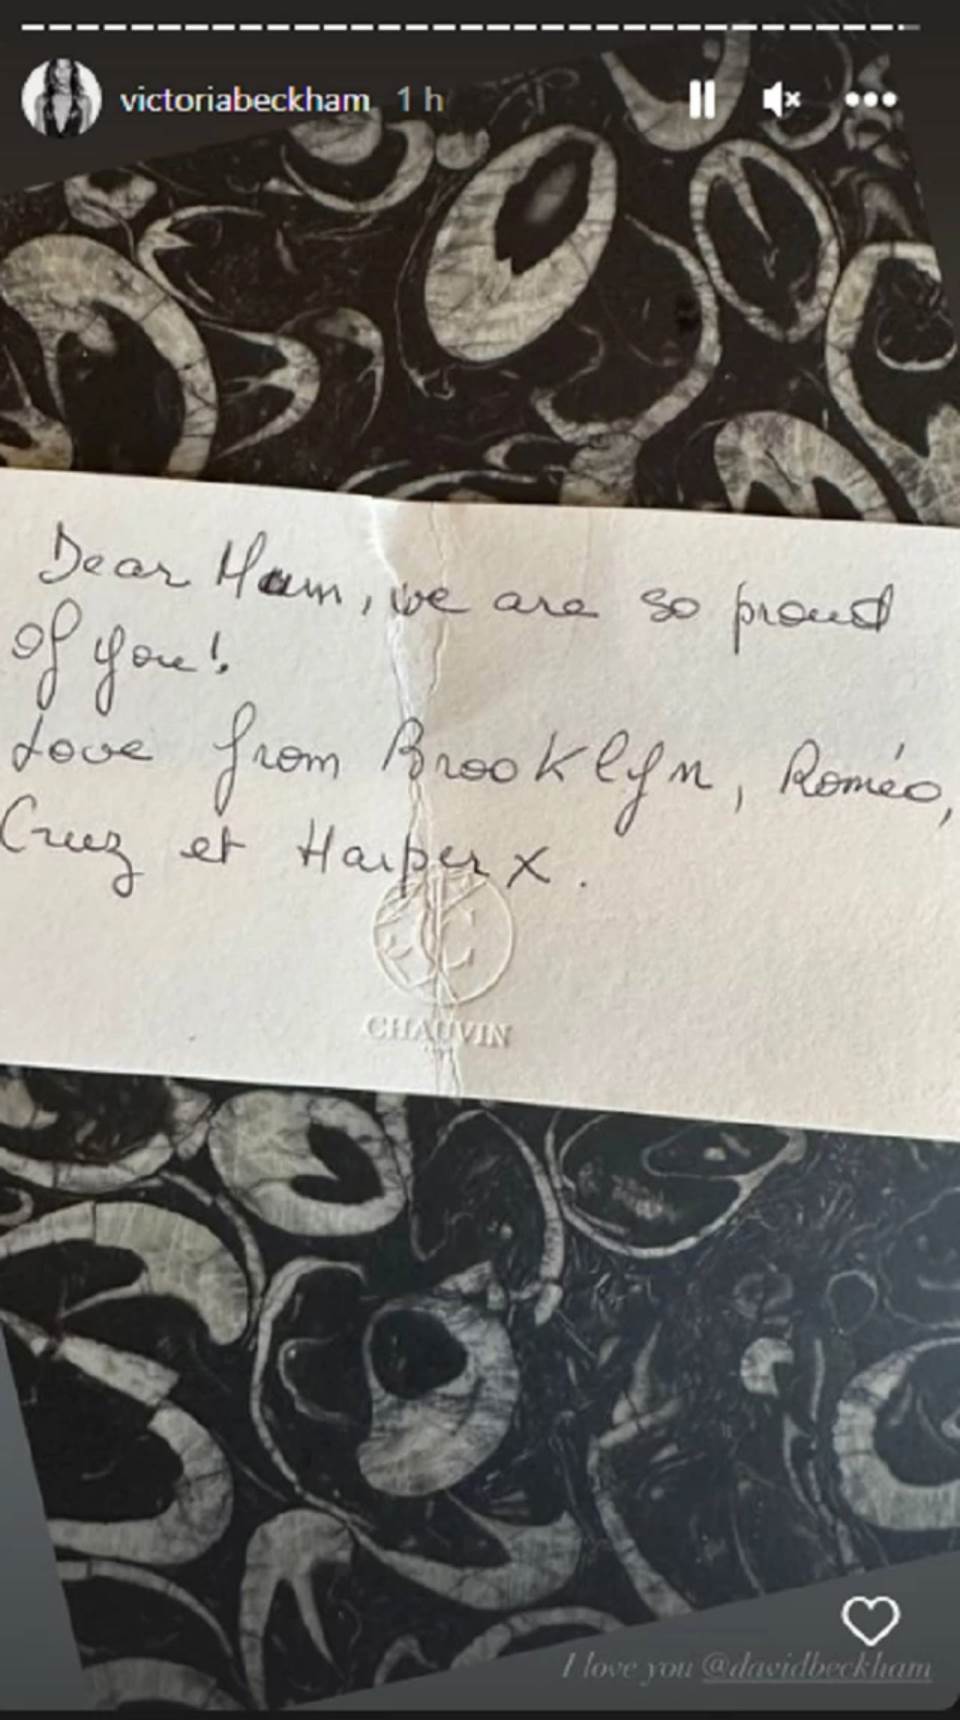 victoriabeckham 1 h
Dear Mum, we are so proud
of you!
Love from Brooklyn, Roméo,
Cruz et Harper x.
CHAUVIN
I love you @davidbeckham